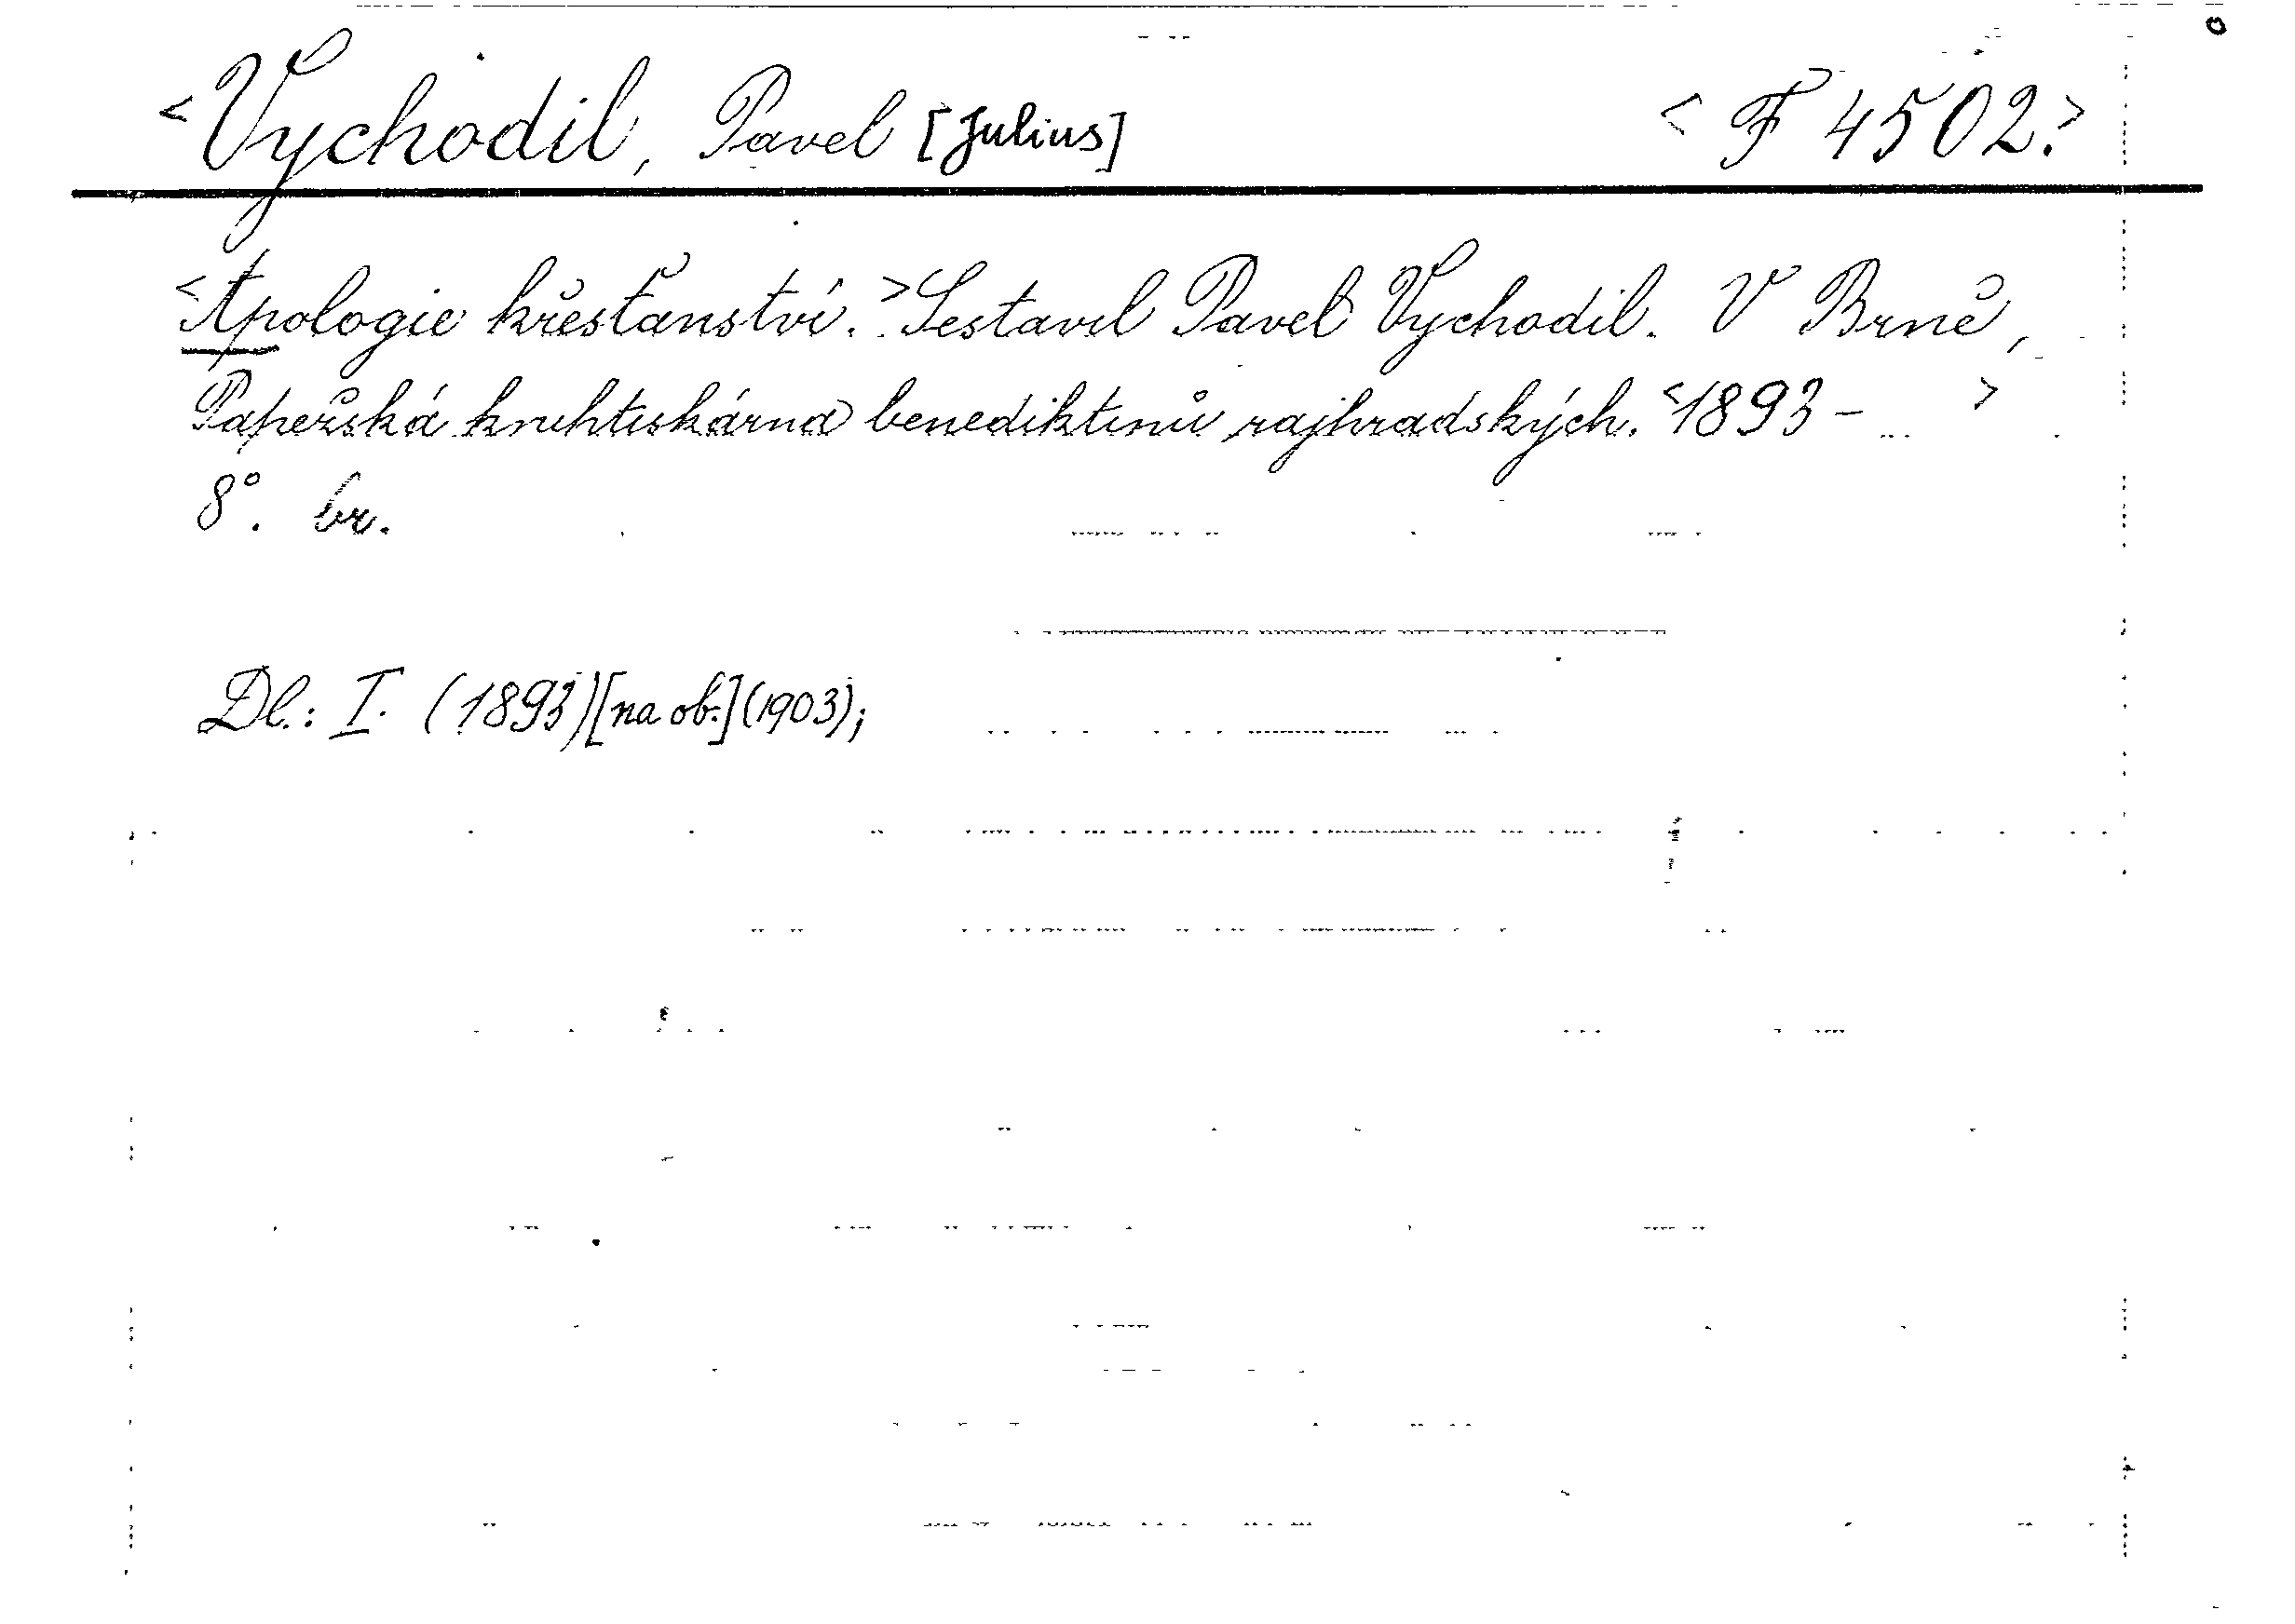 <Vychodil, Pavel [Julius] <F 4502.>
<Apologie křesťanství.> Sestavil Pavel Vychodil. V Brně,
Papežská knihtiskárna benediktinů rajhradských. <1893 - ... >
8°. br.
Dl.: I. (1893)[na ob.](1903);